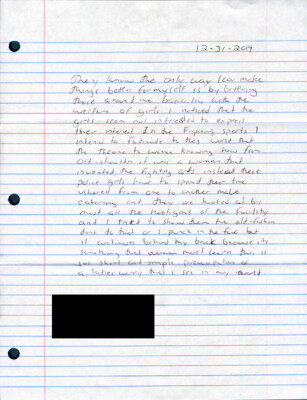 12-31-2019
They know the only way I can make
things better for myself is by bettering
those around me basically with the
welfare of girls I noticed that the
girls seem not interested to express
their interest in the fighting sports I
intend to to this world that
the to women knowing how fam
it was a woman that
invented the fighting arts instead these
poor girls have to spend their time
from one to another male
catering and they are hooted at by
most all the hooligans of the facility
and I tried to show them the old fashion
dont do that or I punch in the face but
it continues behind my back because its
something that woman must learn this is
just short and simple presentation of
a ladies worry that I see in my world